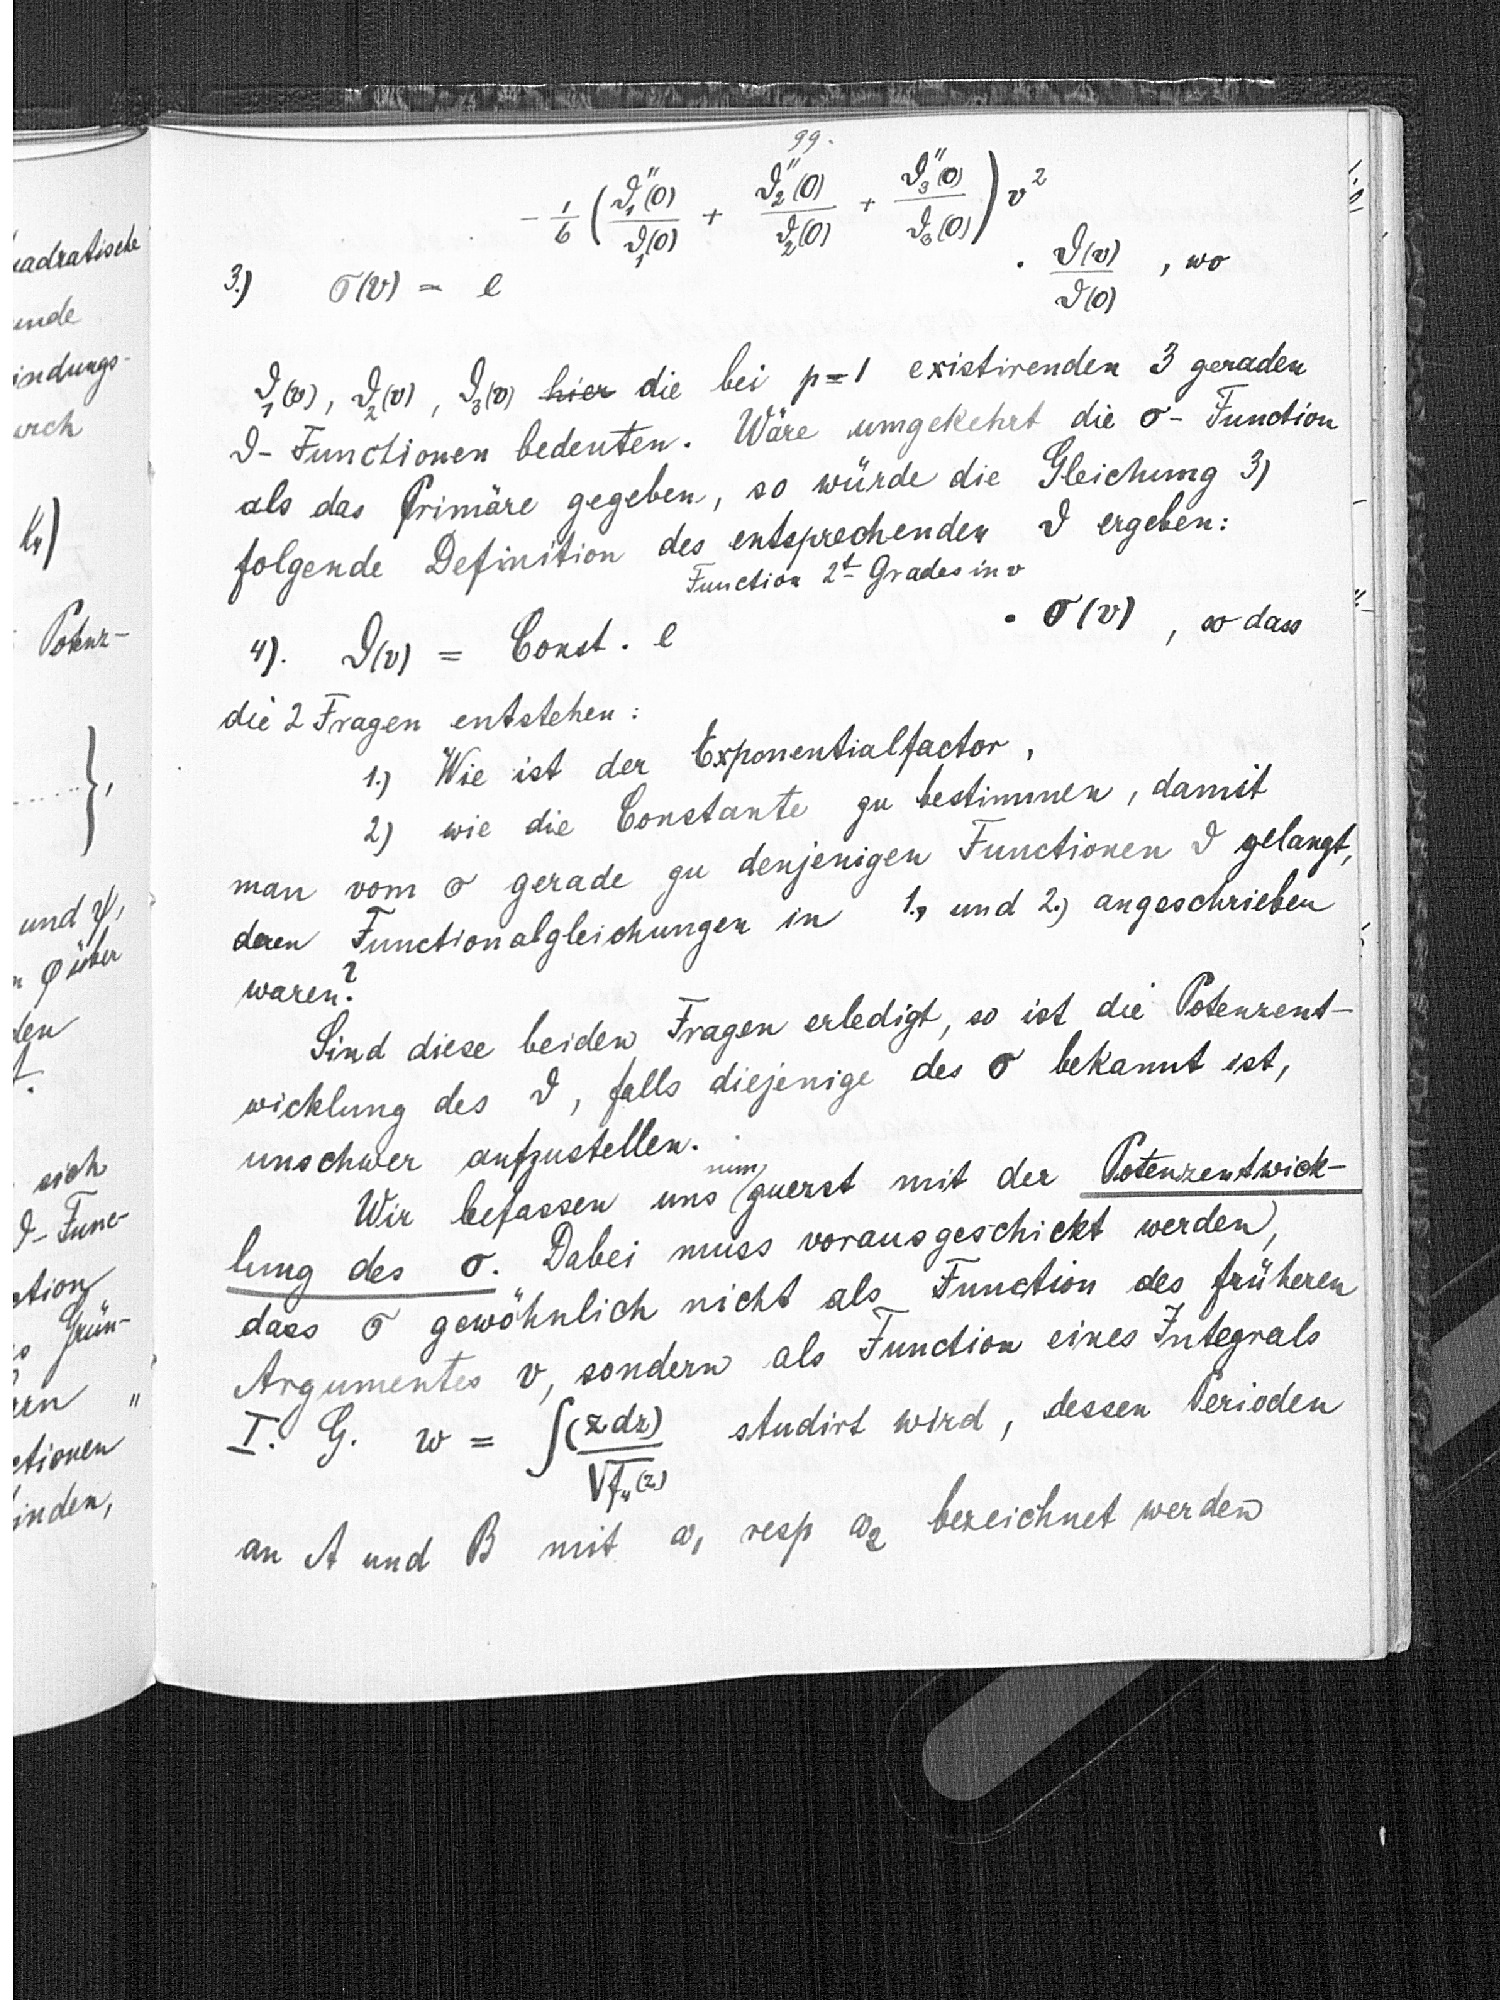 uadratische
unde
indungs-
urch
Potenz-
und ψ,
φ über
den
sich
ϑ-Func-
ction
Grün-
"
ctionen
inden,
99.
3.) σ(v) = e^{-\frac{1}{6}\left(\frac{ϑ_1''(0)}{ϑ_1(0)} + \frac{ϑ_2''(0)}{ϑ_2(0)} + \frac{ϑ_3''(0)}{ϑ_3(0)}\right)v^2} · \frac{ϑ(v)}{ϑ(0)} , wo
ϑ_1(v), ϑ_2(v), ϑ_3(v) hier die bei p=1 existirenden 3 geraden
ϑ-Functionen bedeuten. Wäre umgekehrt die σ-Function
als das Primäre gegeben, so würde die Gleichung 3)
folgende Definition des entsprechenden ϑ ergeben:
4). ϑ(v) = Const. e^{Function 2t Grades in v} · σ(v) , so dass
die 2 Fragen entstehen:
1.) Wie ist der Exponentialfactor,
2) wie die Constante zu bestimmen, damit
man vom σ gerade zu denjenigen Functionen ϑ gelangt,
deren Functionalgleichungen in 1.) und 2.) angeschrieben
waren?
Sind diese beiden Fragen erledigt, so ist die Potenzent-
wicklung des ϑ, falls diejenige des σ bekannt ist,
unschwer aufzustellen.
Wir befassen uns nun zuerst mit der Potenzentwick-
lung des σ. Dabei muss vorausgeschickt werden,
dass σ gewöhnlich nicht als Function des früheren
Argumentes v, sondern als Function eines Integrals
I. G. w = ∫\frac{(z dz)}{\sqrt{f_4(z)}} studirt wird, dessen Perioden
an A und B mit ω_1 resp ω_2 bezeichnet werden